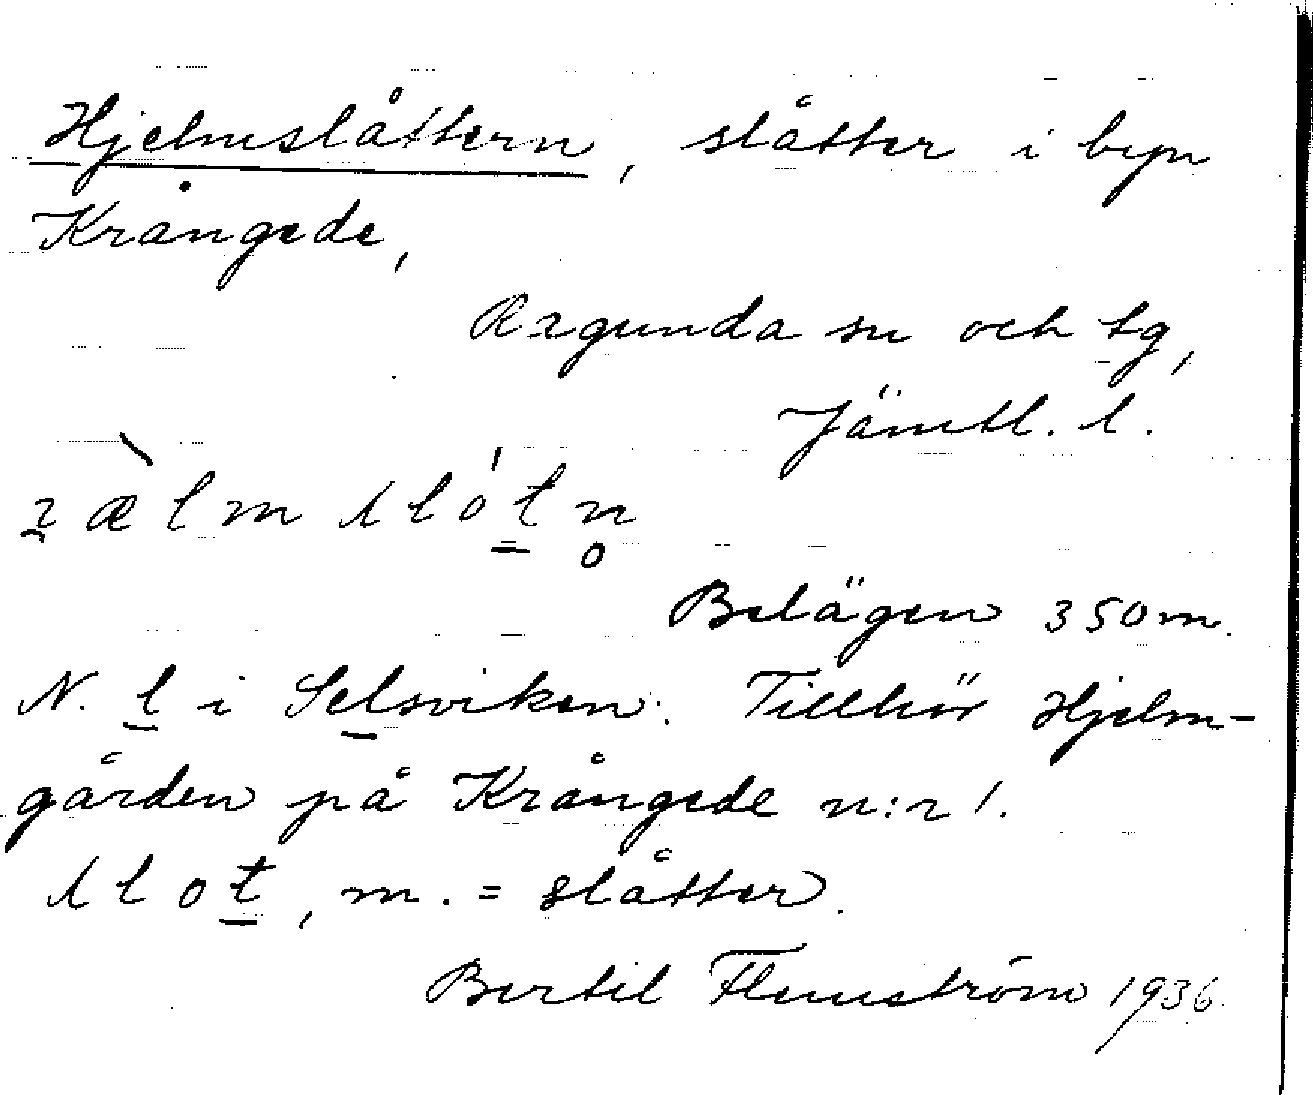 Hjelmslåttern, slåtter i byn
Krångede,
Ragunda sn och tg,
Jämtl. l.
Belägen 350 m.
N. t i Selsviken. Tillhör Hjelm-
gården på Krångede n:r 1.
slot, m. = slåtter.
Bertil Flemström 1936.